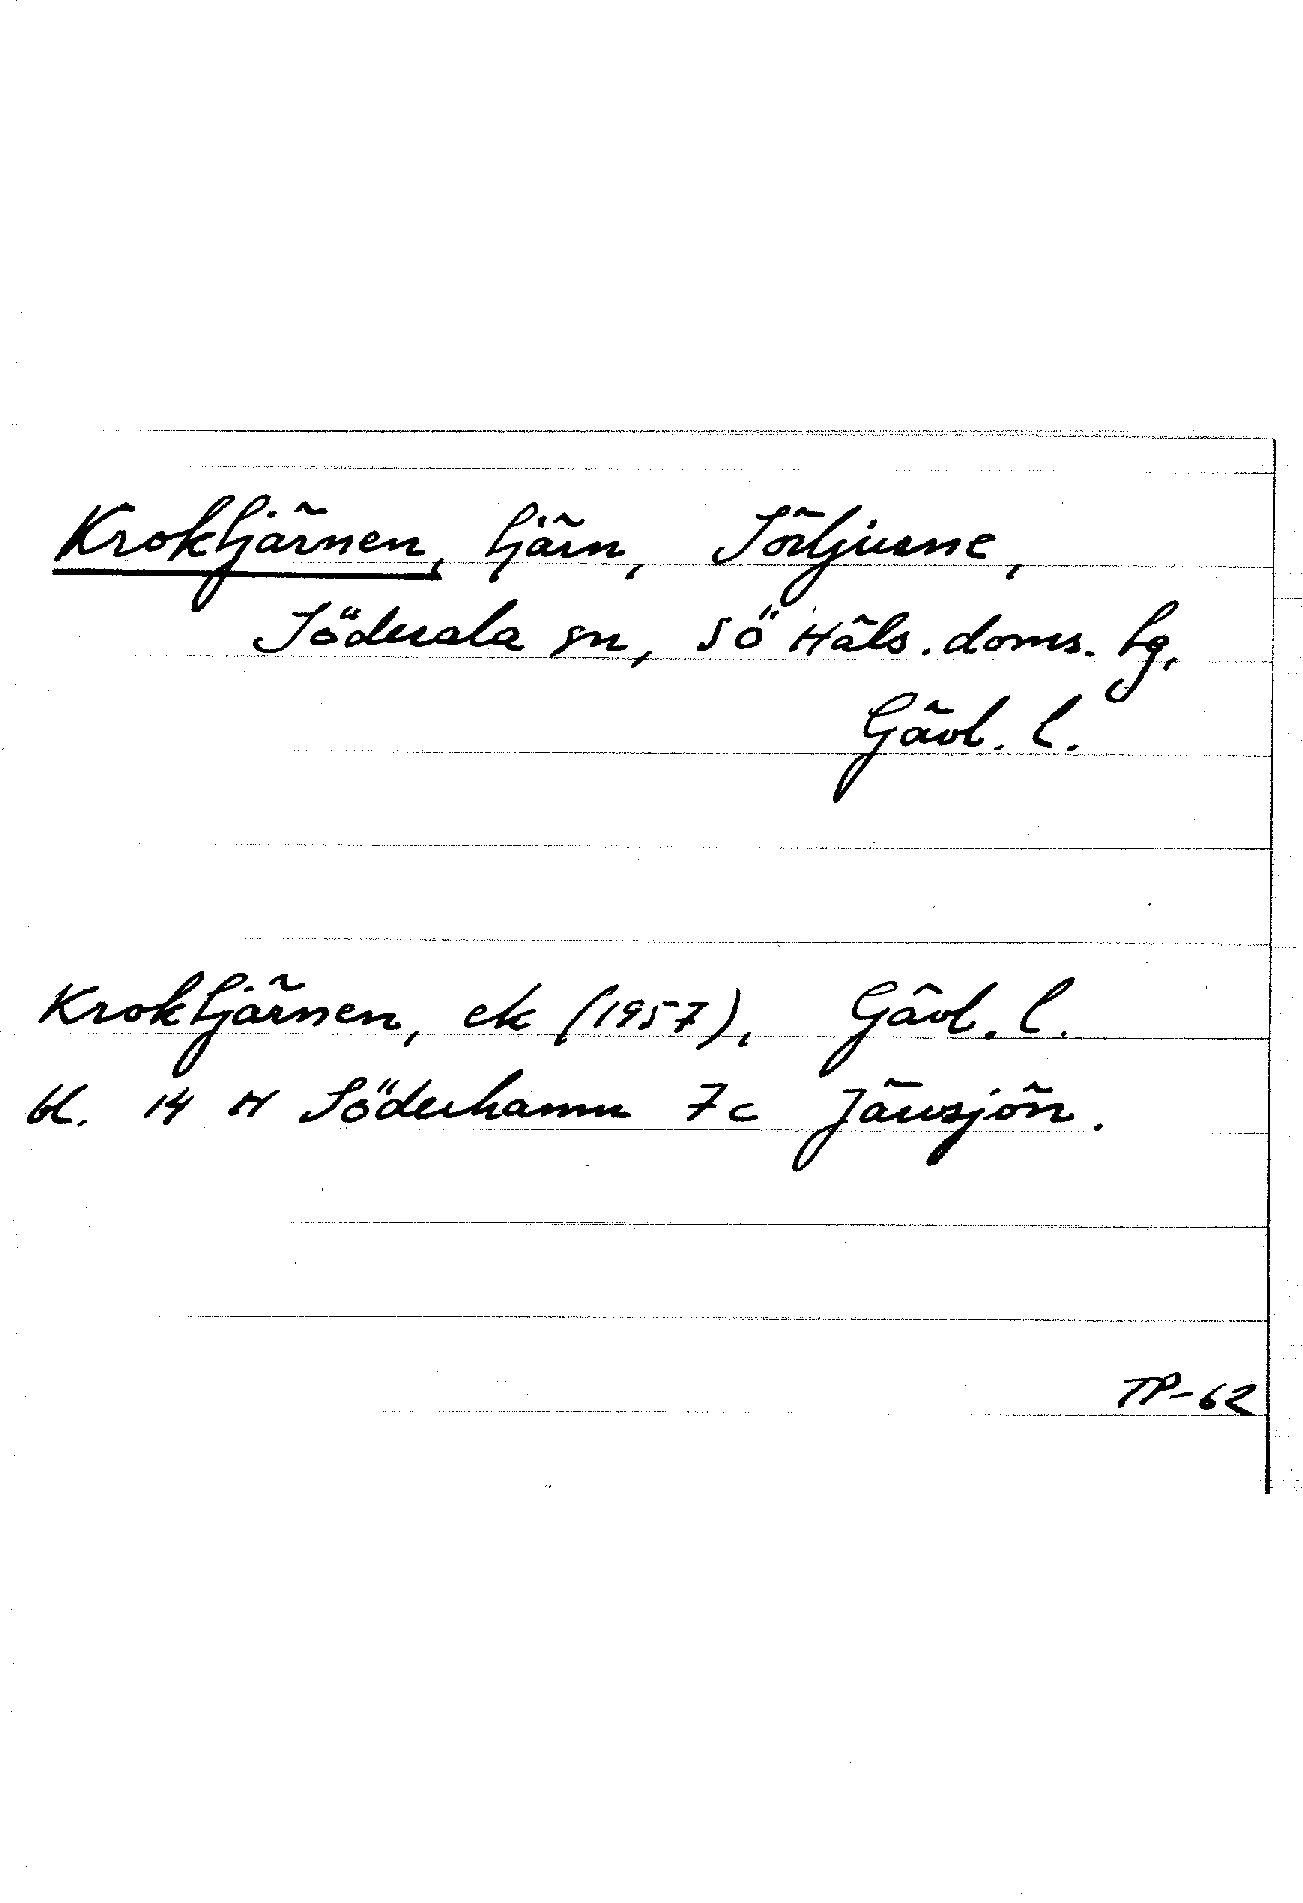 Kroktjärnen, tjärn, Sörljusne,
Söderala sn, SÖ Häls. doms. tg,
Gävl. l.
Kroktjärnen, ek (1957), Gävl. l.
bl. 14 H Söderhamn 7c Järvsjön.
TP-62